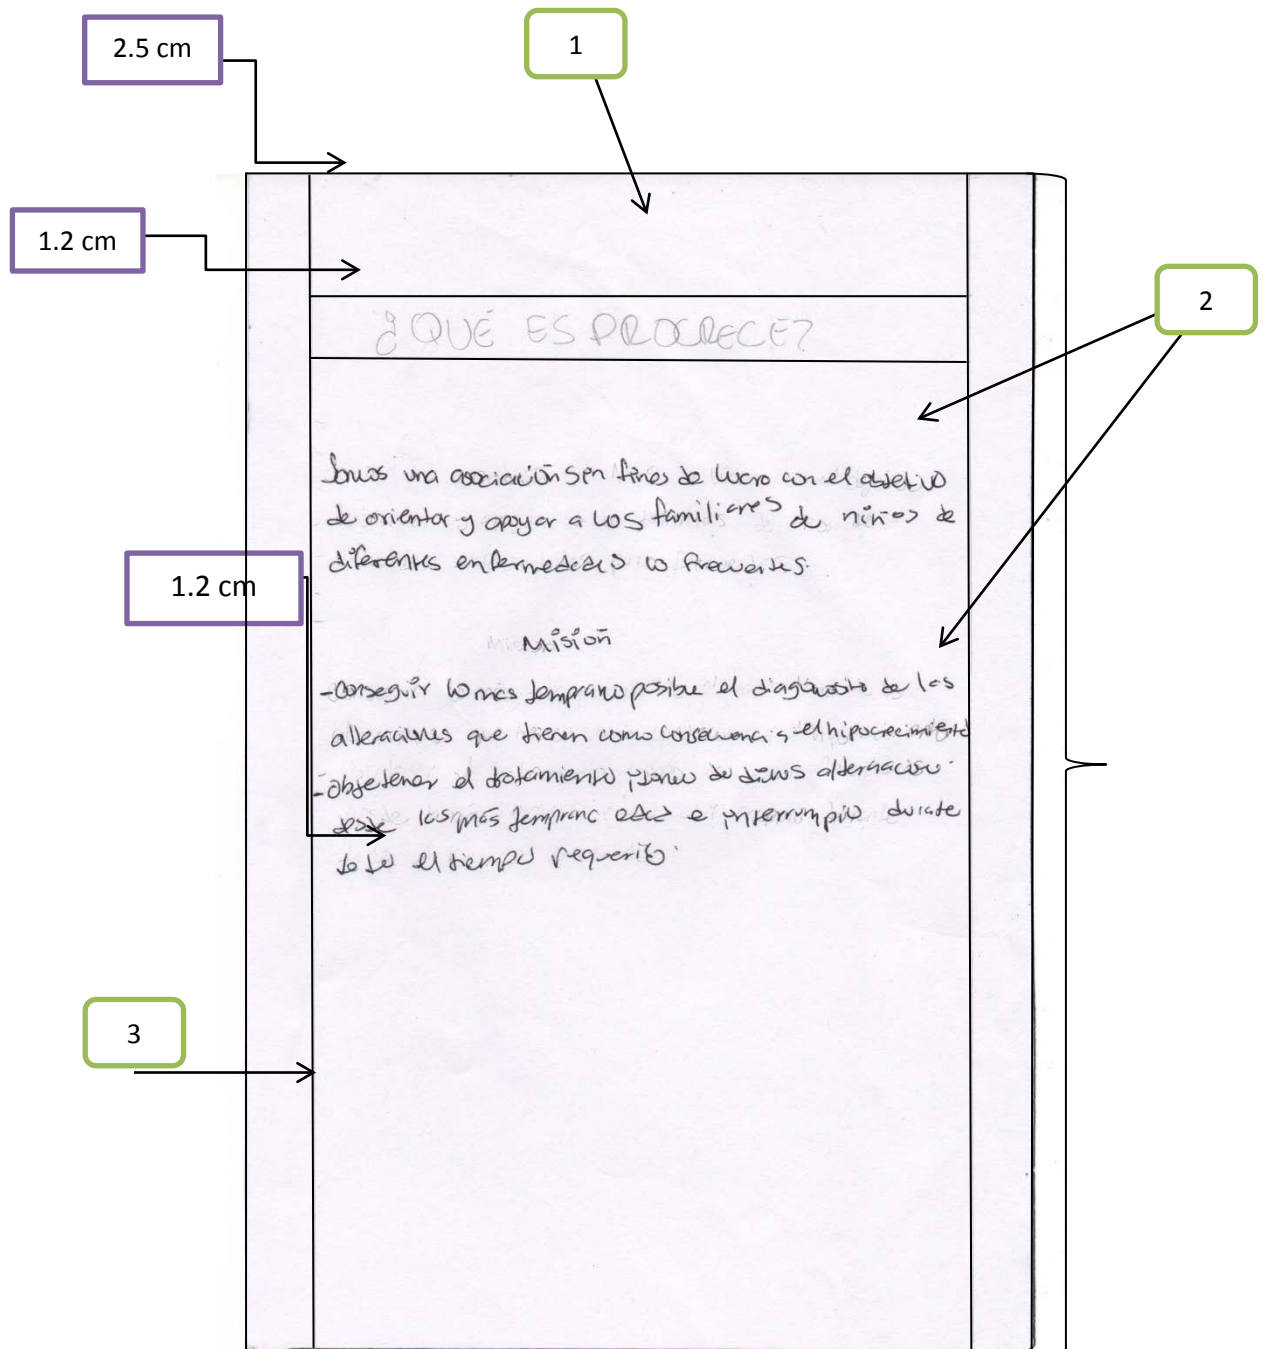 2.5 cm
1
1.2 cm
2
¿QUÉ ES PROCRECE?
Somos una asociación sin fines de lucro con el objetivo
de orientar y apoyar a los familiares de niños de
diferentes enfermedades lo frecuentes.
1.2 cm
Misión
-Conseguir lo mas temprano posible el diagnostico de las
alteraciones que tienen como consecuencia el hipocrecimiento
-Objetener el tratamiento de dichas
desde las más temprana edad e interrumpio durate
todo el tiempo requerido.
3